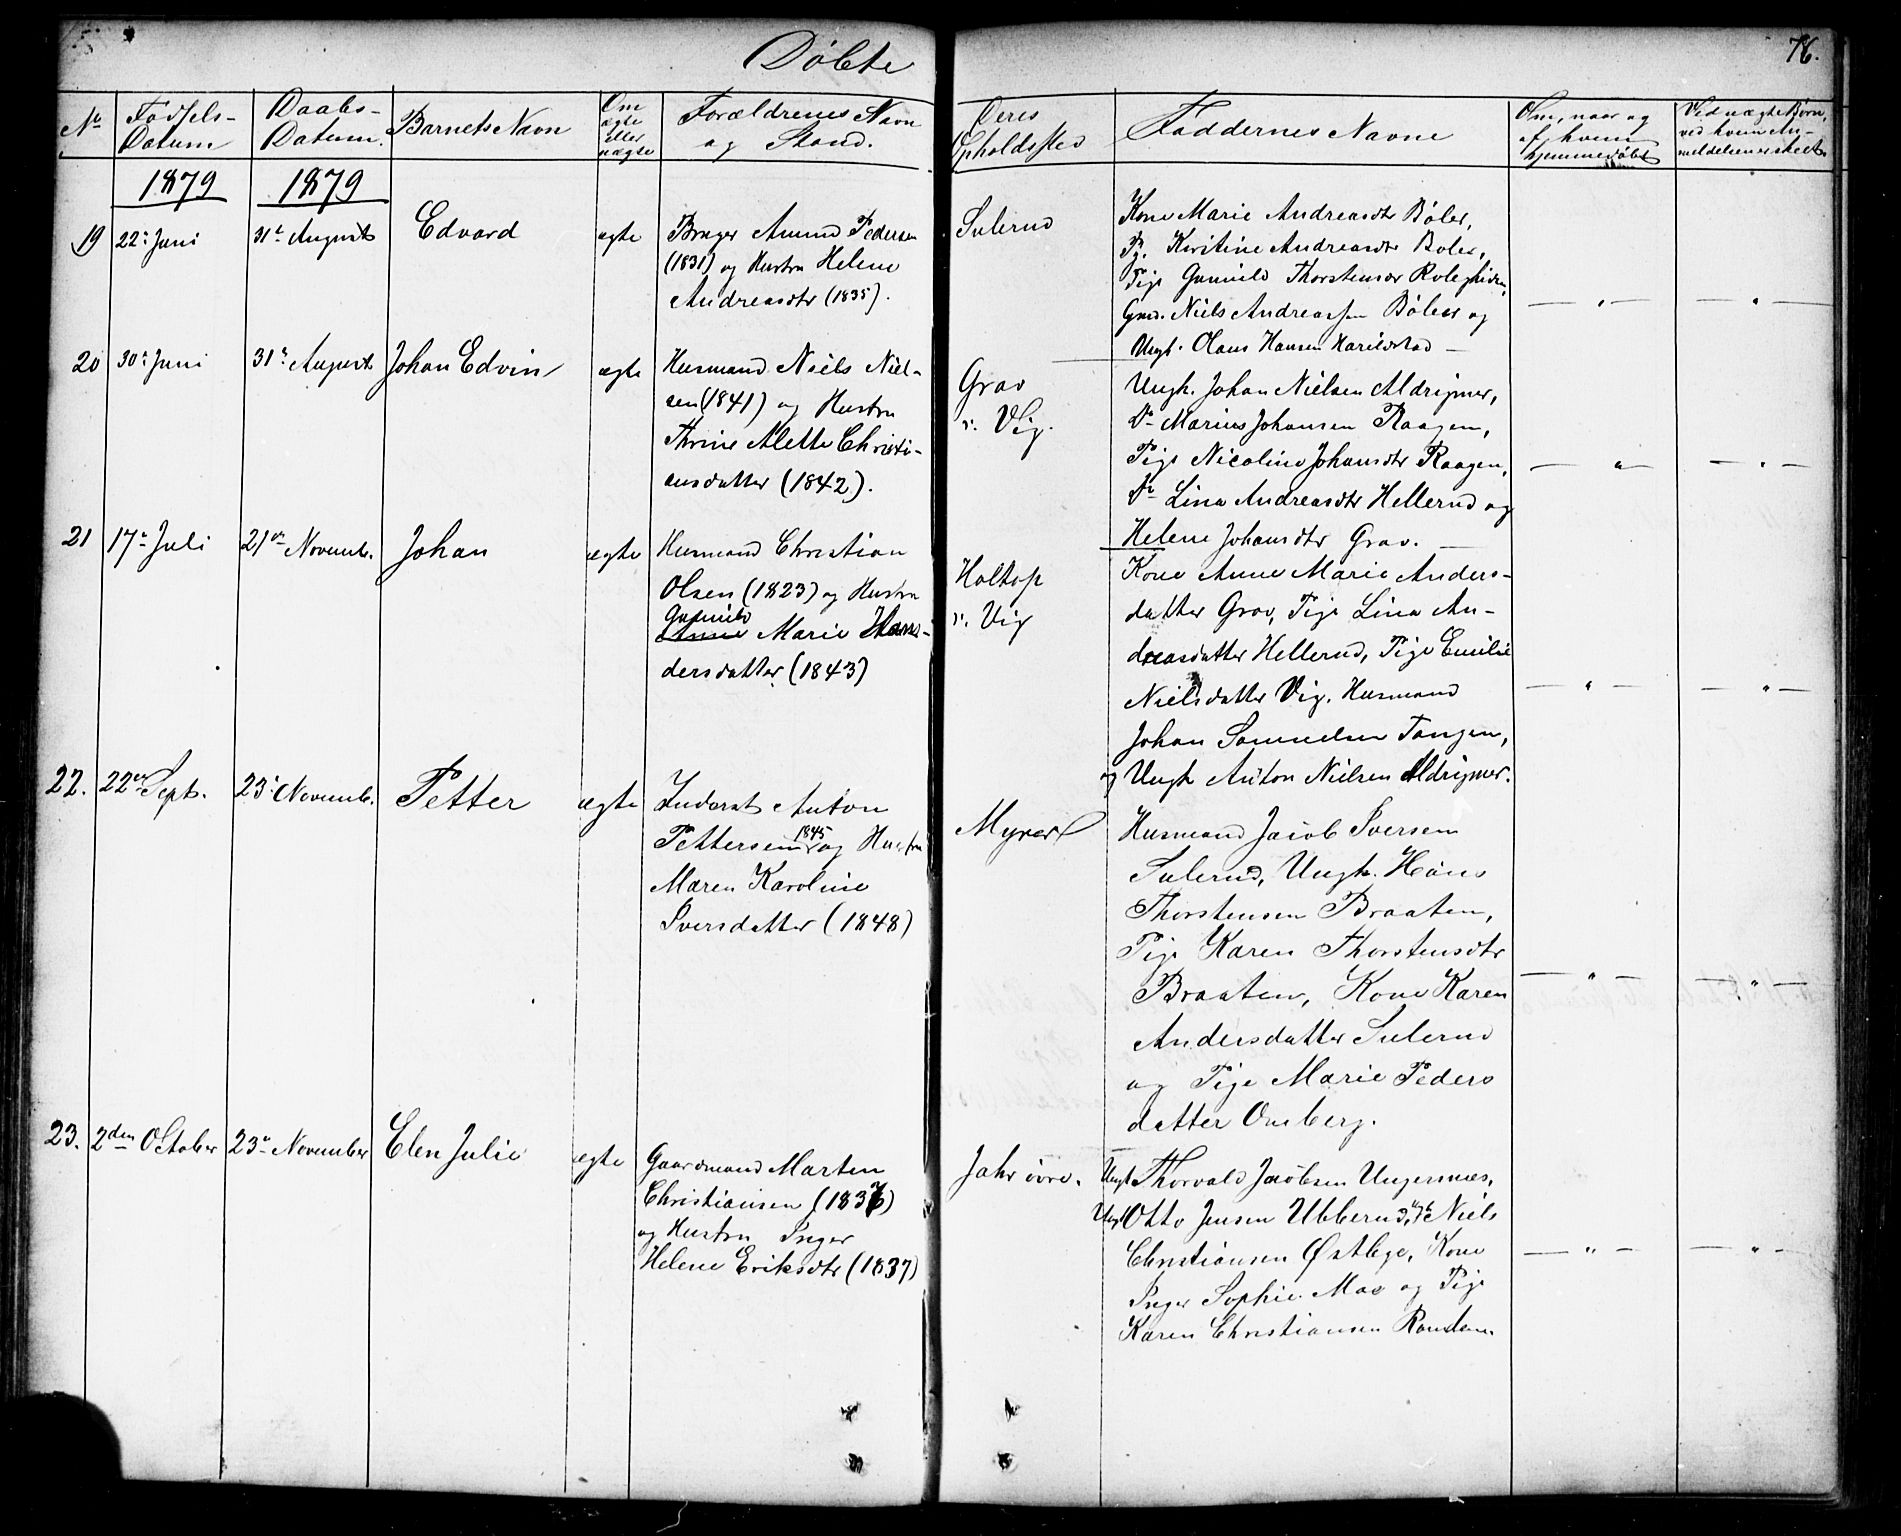 Døbte
76.
No
Fødsels-
Datum
Daabs-
Datum.
Barnets Navn
Om
ægte
eller
uægte
Forældrenes Navn
og Stand.
Deres
Opholdssted
Faddernes Navne
Om, naar og
af hvem
hjemmedøbt
Ved uægte Børn,
ved hvem An-
meldelsen er skeet.
1879
1879
19
22. Juni
31t August
Edvard
ægte
Bruger Amund Pedersen
(1831) og Hustru Helene
Andreasdtr (1835).
Sulerud
Kone Marie Andreasdtr Bøler,
Pg. Kirstine Andreasdtr Boler,
Pige Gunnild Thorstensdr
Grd. Niels Andreassen Bøler og
Ungk. Olaus Hansen Harildstad —
20
30. Juni
31. August
Johan Edvin
ægte
Husmand Niels Niel-
sen (1841) og Hustru
Thrine Alette Christi-
ansdatter (1842).
Grav
v. Vig.
Ungk. Johan Nielsen Aldrigmer,
Do Marius Johansen Raagen,
Pige Nicoline Johansdtr Raagen,
Do Lina Andreasdtr Hellerud og
Helene Johansdtr Grav. —
21
17. Juli
21de Novemb.
Johan
ægte
Husmand Christian
Olsen (1823) og Hustru
Gunnild
Anne Marie Han-
dersdatter (1843)
Holtop
v. Vig
Kone Anne Marie Anders-
datter Grav, Pige Lina An-
dreasdatter Hellerud, Pige Emilie
Nielsdatter Vig. Husmand
Johan Samuelsen Tangen,
og Ungk Anton Nielsen Aldrigmer.
22.
22de Sept.
23. Novemb.
Petter
ægte
Inderst Anton
Pettersen 1845 og Hustru
Maren Karoline
Iversdatter (1848)
Myrer
Husmand Jacob Iversen
Sulerud, Ungk. Hans
Thorstensen Braaten,
Pige Karen Thorstensdtr
Braaten, Kone Karen
Andersdatter Sulerud
og Pige Marie Peders
datter Omberg.
23.
2den October
23. November
Elen Julie
ægte
Gaardmand Marten
Christiansen (1837)
og Hustru Inger
Helene Eriksdtr (1837)
Jahr øvre.
Ungk Thorvald Jacobsen Ungersnæs,
Ungk Otto Jensen Ubberud, ugk Niels
Christiansen Østbye, Kone
Inger Sophie Moe og Pige
Karen Christiansen